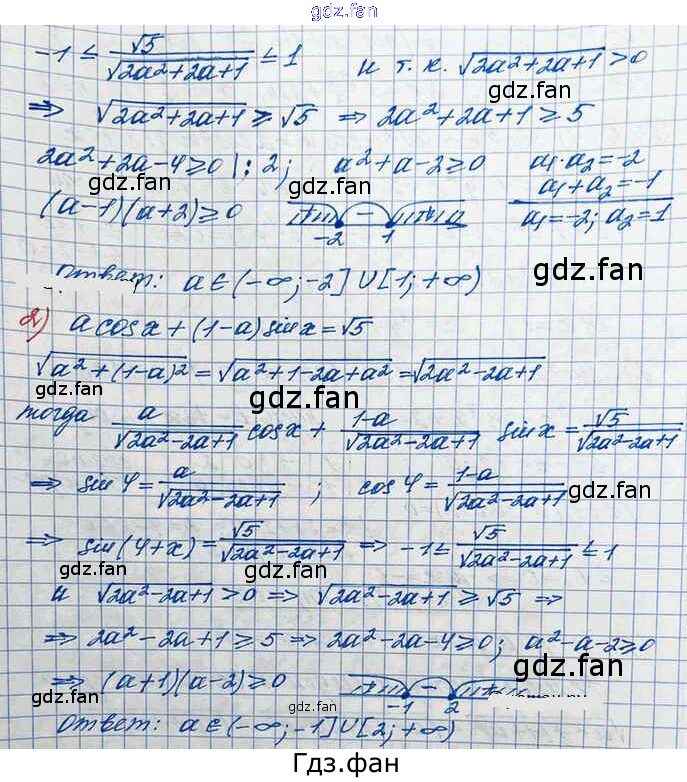 gdz.fan
-1 ≤ √5/√(2a²+2a+1) ≤ 1 и т.к. √(2a²+2a+1) > 0
gdz.fan gdz.fan
⇒ √(2a²+2a+1) ≥ √5 ⇒ 2a²+2a+1 ≥ 5
2a²+2a-4 ≥ 0 |: 2; a²+a-2 ≥ 0 a₁·a₂ = -2
gdz.fan gdz.fan a₁+a₂ = -1
(a-1)(a+2) ≥ 0 - -2 1 a₁ = -2; a₂ = 1
gdz.fan
Ответ: a ∈ (-∞; -2] ∪ [1; +∞)
2) a cos x + (1-a) sin x = √5
√(a²+(1-a)²) = √(a²+1-2a+a²) = √(2a²-2a+1)
gdz.fan gdz.fan
тогда a/√(2a²-2a+1) cos x + (1-a)/√(2a²-2a+1) sin x = √5/√(2a²-2a+1)
⇒ sin φ = a/√(2a²-2a+1); cos φ = (1-a)/√(2a²-2a+1)
gdz.fan gdz.fan
⇒ sin(φ+x) = √5/√(2a²-2a+1) ⇒ -1 ≤ √5/√(2a²-2a+1) ≤ 1
gdz.fan gdz.fan
и √(2a²-2a+1) > 0 ⇒ √(2a²-2a+1) ≥ √5 ⇒
⇒ 2a²-2a+1 ≥ 5 ⇒ 2a²-2a-4 ≥ 0; a²-a-2 ≥ 0
gdz.fan gdz.fan
⇒ (a+1)(a-2) ≥ 0 - -1 2
gdz.fan gdz.fan
Ответ: a ∈ (-∞; -1] ∪ [2; +∞)
Гдз.фан